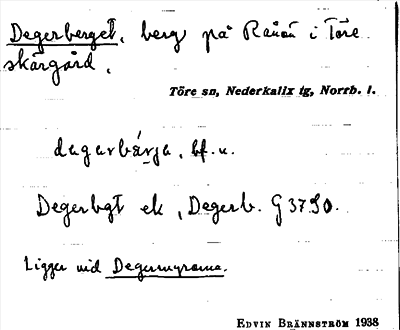 Degerberget, berg på Rånön i Töre
skärgård.
Töre sn, Nederkalix tg, Norrb. l.
dagarbärja, bf. u.
Degerbgt ek, Degerb. G 3790.
Ligger vid Degermyrarna.
EDVIN BRÄNNSTRÖM 1938